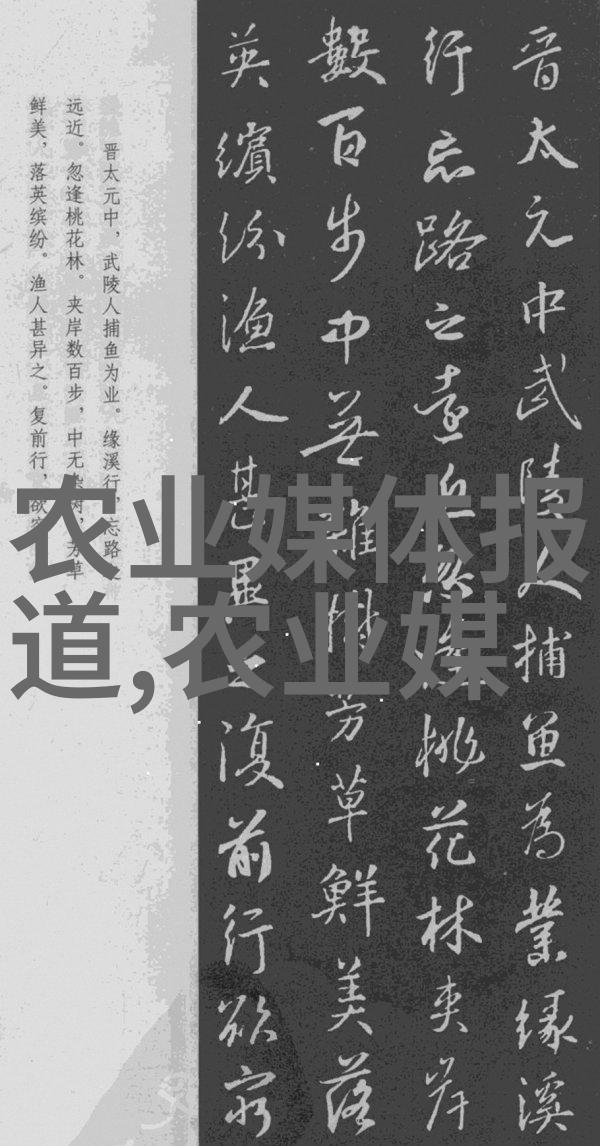 晋太元中武陵人捕魚為業緣溪
行忘路之遠近忽逢桃花林夾岸
數百步中無雜樹芳草鮮美落
英繽紛漁人甚異之復前行欲窮
晋太元中，武陵人捕鱼为业。缘溪行，忘路之
远近。忽逢桃花林。夹岸数百步，中无杂树，芳草
鲜美，落英缤纷。渔人甚异之。复前行，欲穷
农业媒体报
道,农业媒